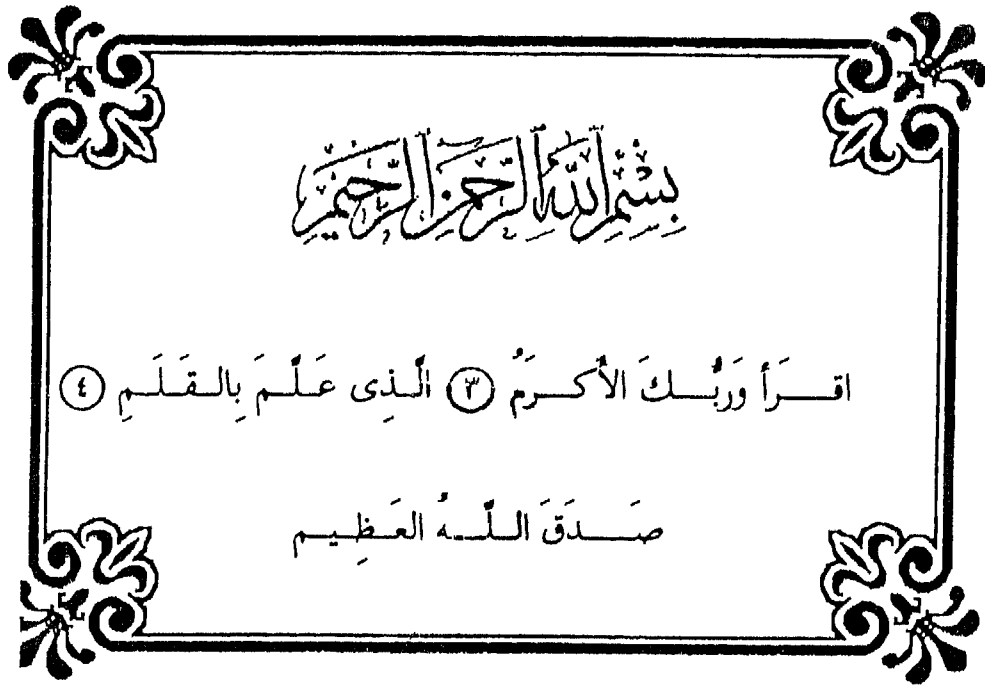 بِسْمِ اللَّهِ الرَّحْمَنِ الرَّحِيمِ
اقـرَأ وَرَبُّـكَ الأكـرَمُ ٣ الَّـذِى عَـلَّـمَ بِالـقَـلَـمِ ٤
صَـدَقَ الـلَّـهُ العَـظِـيـم